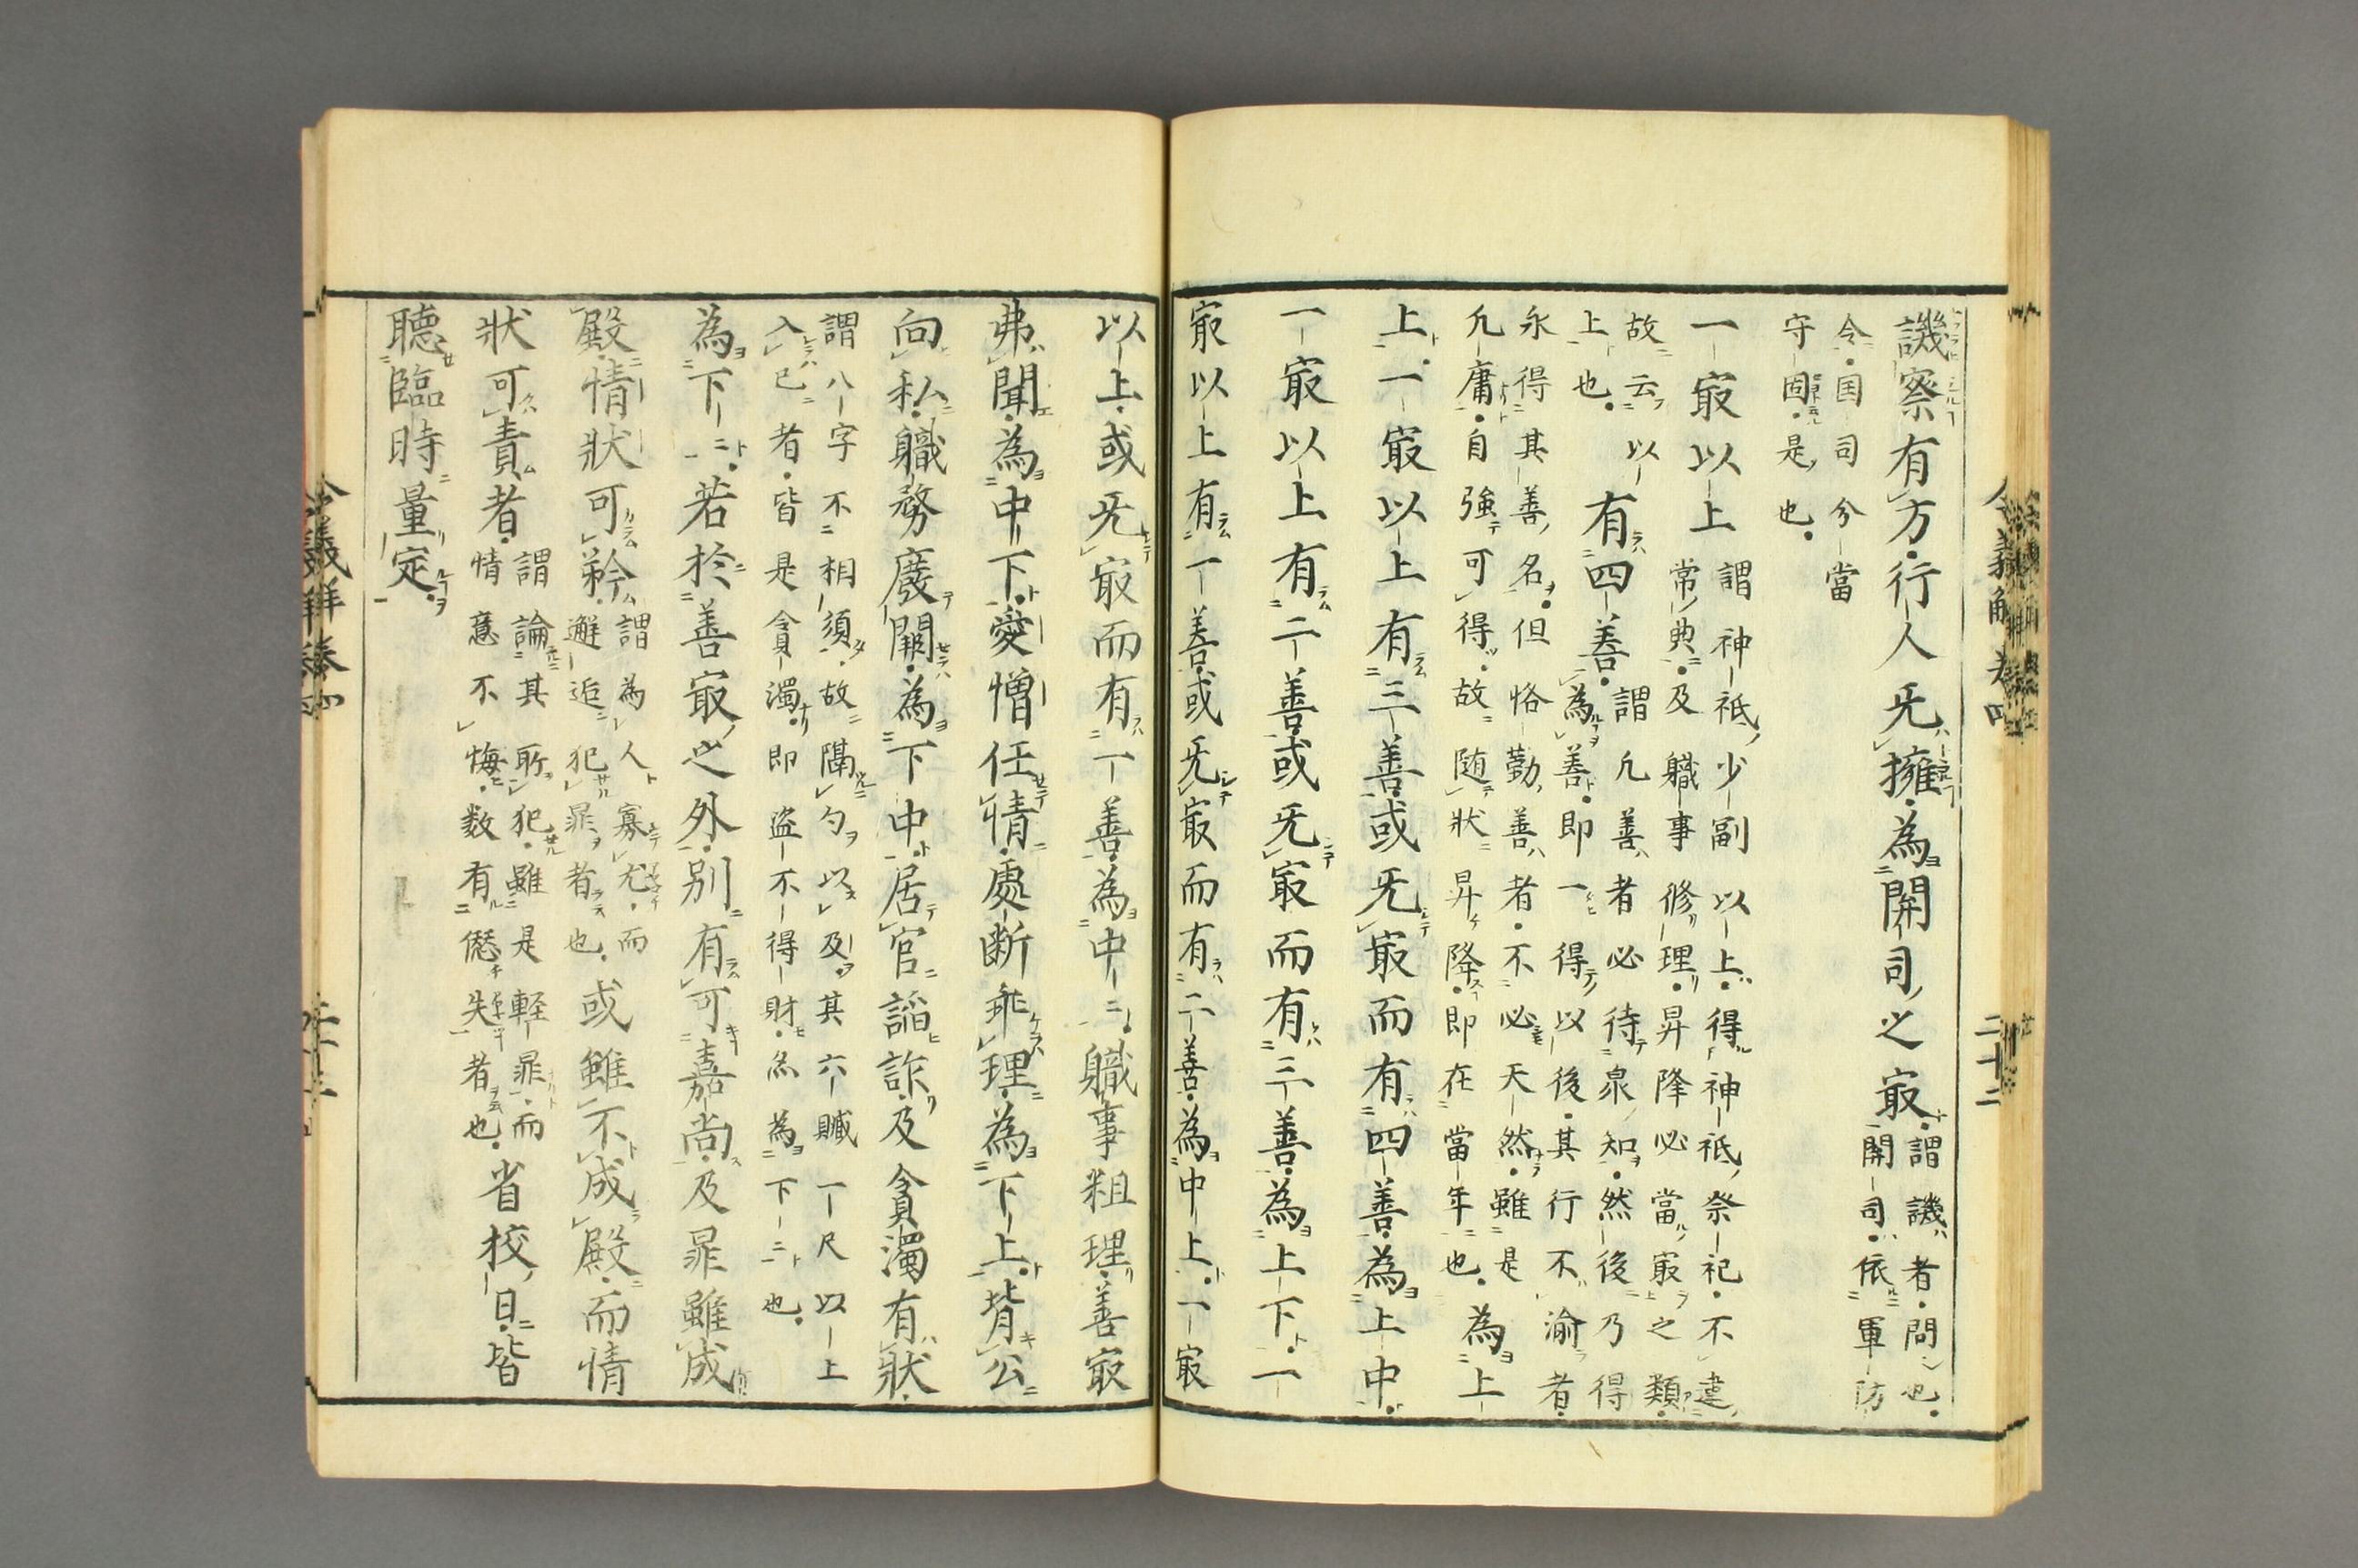 譏察有方行人旡擁為開司之㝡謂譏者問也
開司依軍防
令国司分當
守固是也
一㝡以上謂神祗少副以上得神祗祭祀不違
常典及職事修理昇降必當㝡之類
故云以
上也
有四善謂凢善者必待泉知然後乃得
為善即一得以後其行不渝者
永得其善名但恪勤善者不必天然雖是
凢庸自強可得故随状昇降即在當年也為上
上一㝡以上有三善或旡㝡而有四善為上中
一㝡以上有二善或旡㝡而有三善為上下一
㝡以上有一善或旡㝡而有二善為中上一㝡
以上或旡㝡而有一善為中中職事粗理善㝡
弗聞為中下愛憎任情處断乖理為下上背公
向私職務廢闕為下中居官謟詐及貪濁有狀
謂八字不相須故隔勺以及其六贓一尺以上
入已者皆是貪濁即盗不得財㒵為下下也
為下下若於善㝡之外別有可嘉尚及罪雖成
殿情狀可矜謂為人寡尤而
邂逅犯罪者也
或雖不成殿而情
狀可責者謂論其所犯雖是軽罪而
情意不悔数有愆失者也
省校日皆
聽臨時量定
令義解卷四
二十二